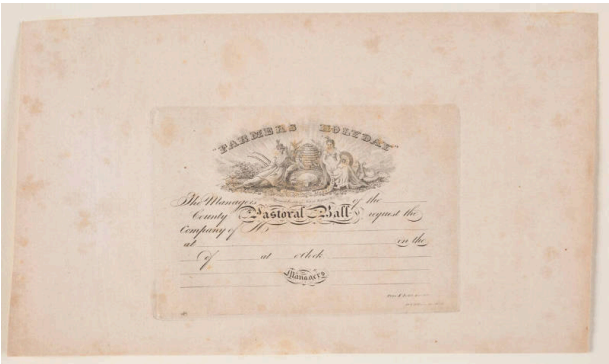 "FARMERS HOLYDAY"
The Managers of the
County Pastoral Ball request the
Company of M
at on the
of at o'clock
Managers